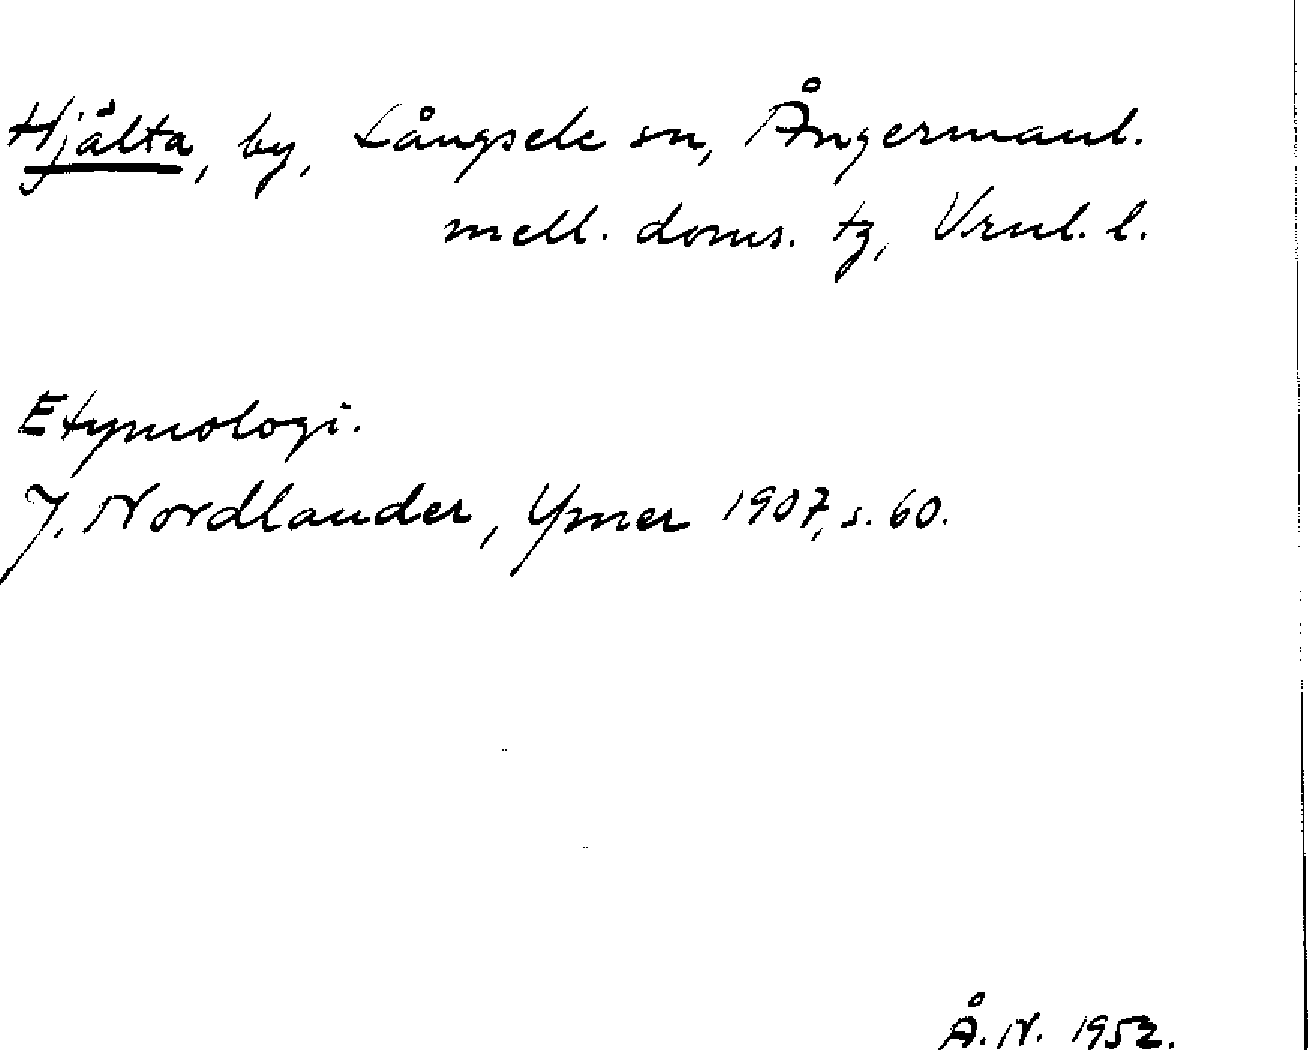 Hjälta, by, Långsele sn, Ångermanl.
mell. doms. tg, V.rnl. l.
Etymologi.
J. Nordlander, Ymer 1907, s. 60.
Å. N. 1952.